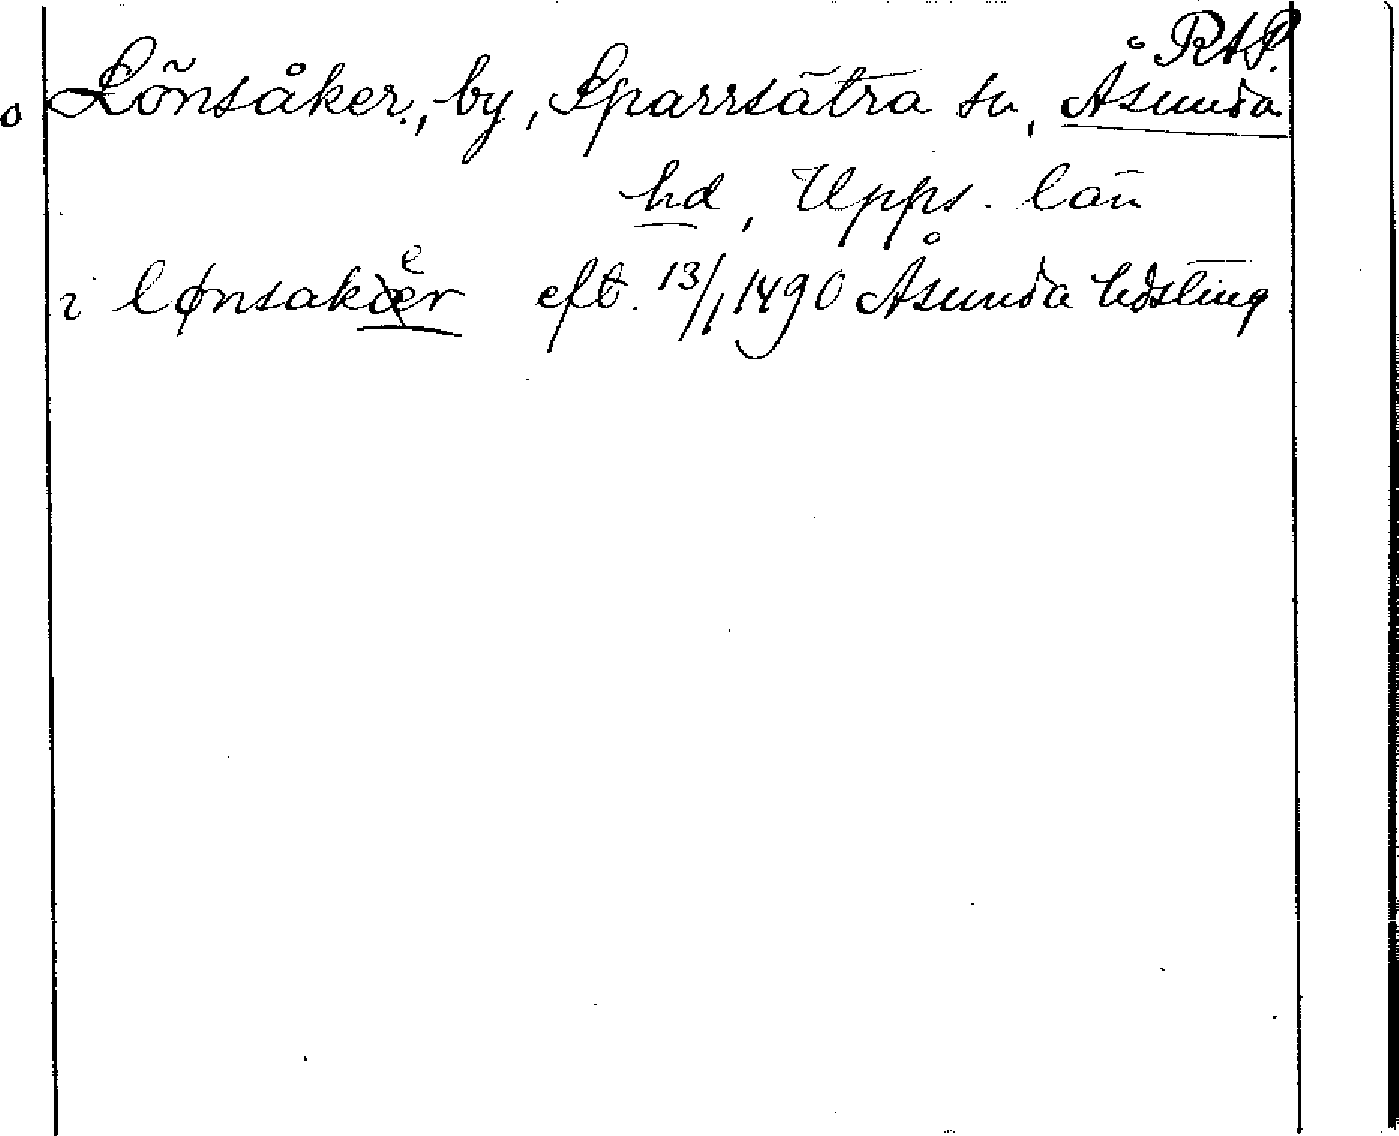 RAP.
Lönsåker, by, Sparrsätra sn, Åsunda
hd, Upps. län
i lønsaker eft. 13/1 1490 Åsunda hdsting